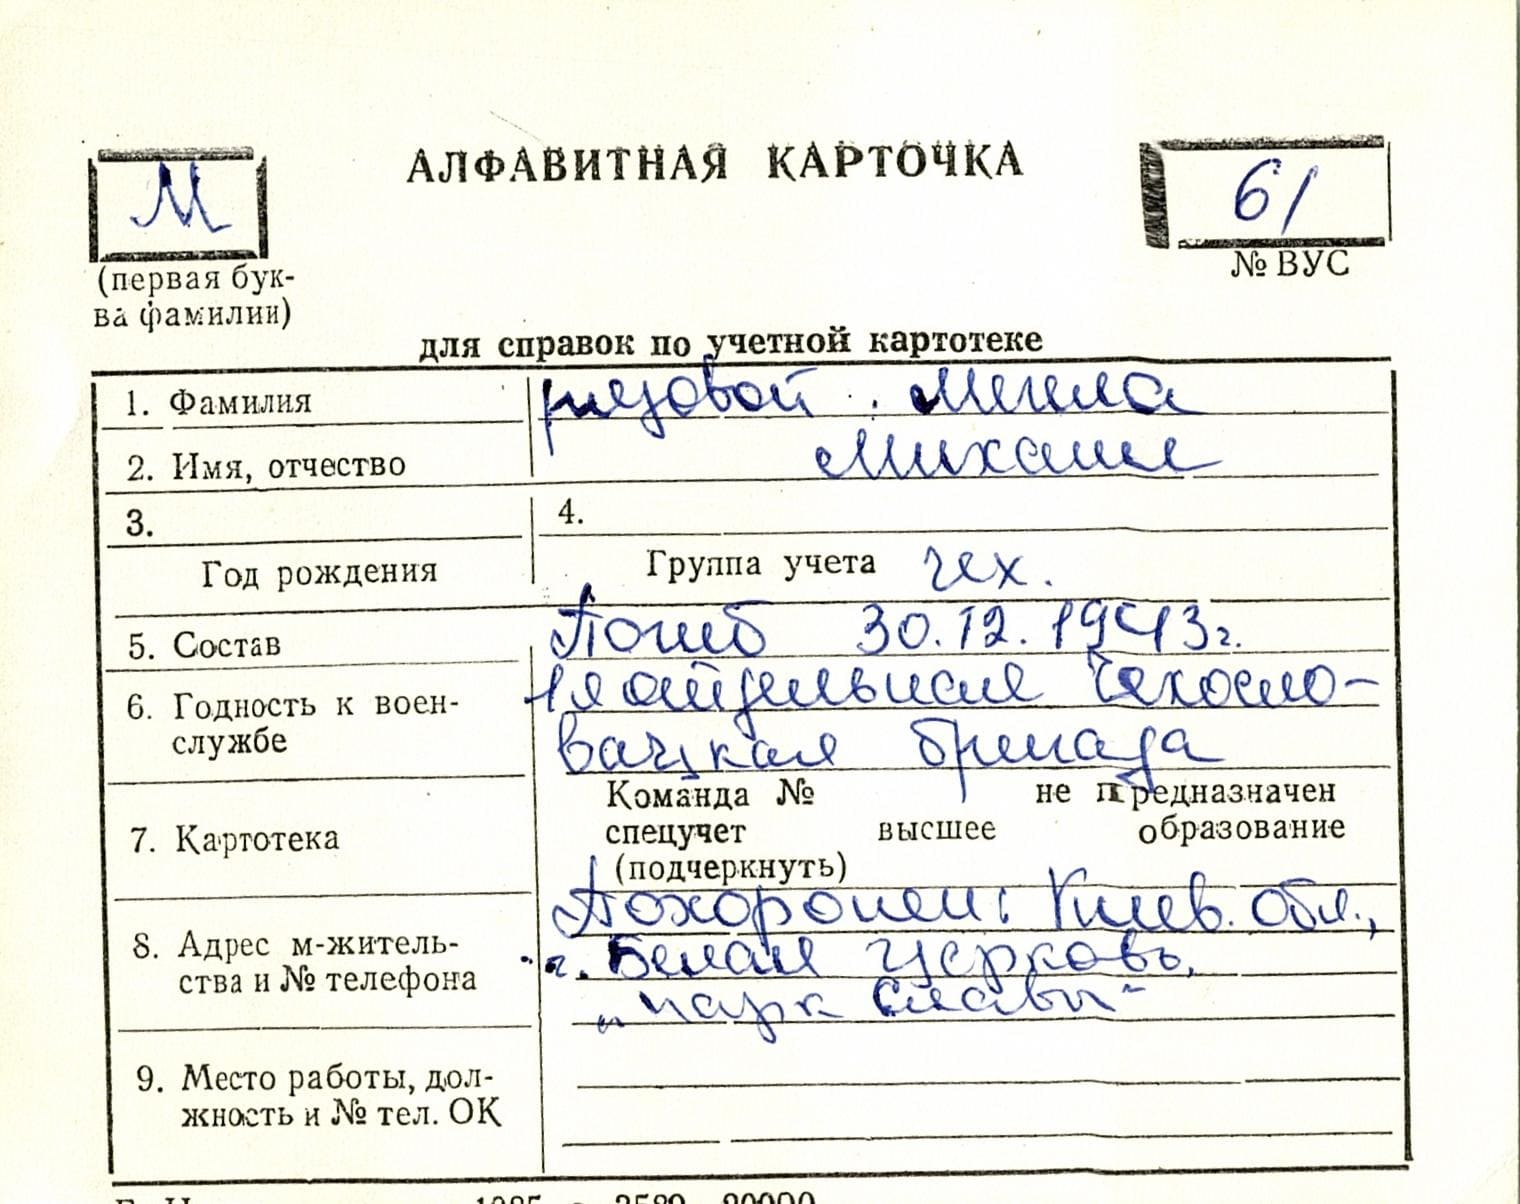 АЛФАВИТНАЯ КАРТОЧКА
М
61
(первая бук-
ва фамилии)
№ ВУС
для справок по учетной картотеке
1. Фамилия рядовой
2. Имя, отчество Михаил
3. 4.
Год рождения Группа учета чех.
5. Состав Погиб 30.12.1943г.
6. Годность к воен- 1я отдельная Чехосло-
службе вацкая бригада
Команда № не предназначен
7. Картотека спецучет высшее образование
(подчеркнуть)
Похоронен: Киев. обл.,
8. Адрес м-житель- г. Белая Церковь,
ства и № телефона „парк Славы"
9. Место работы, дол-
жность и № тел. ОК